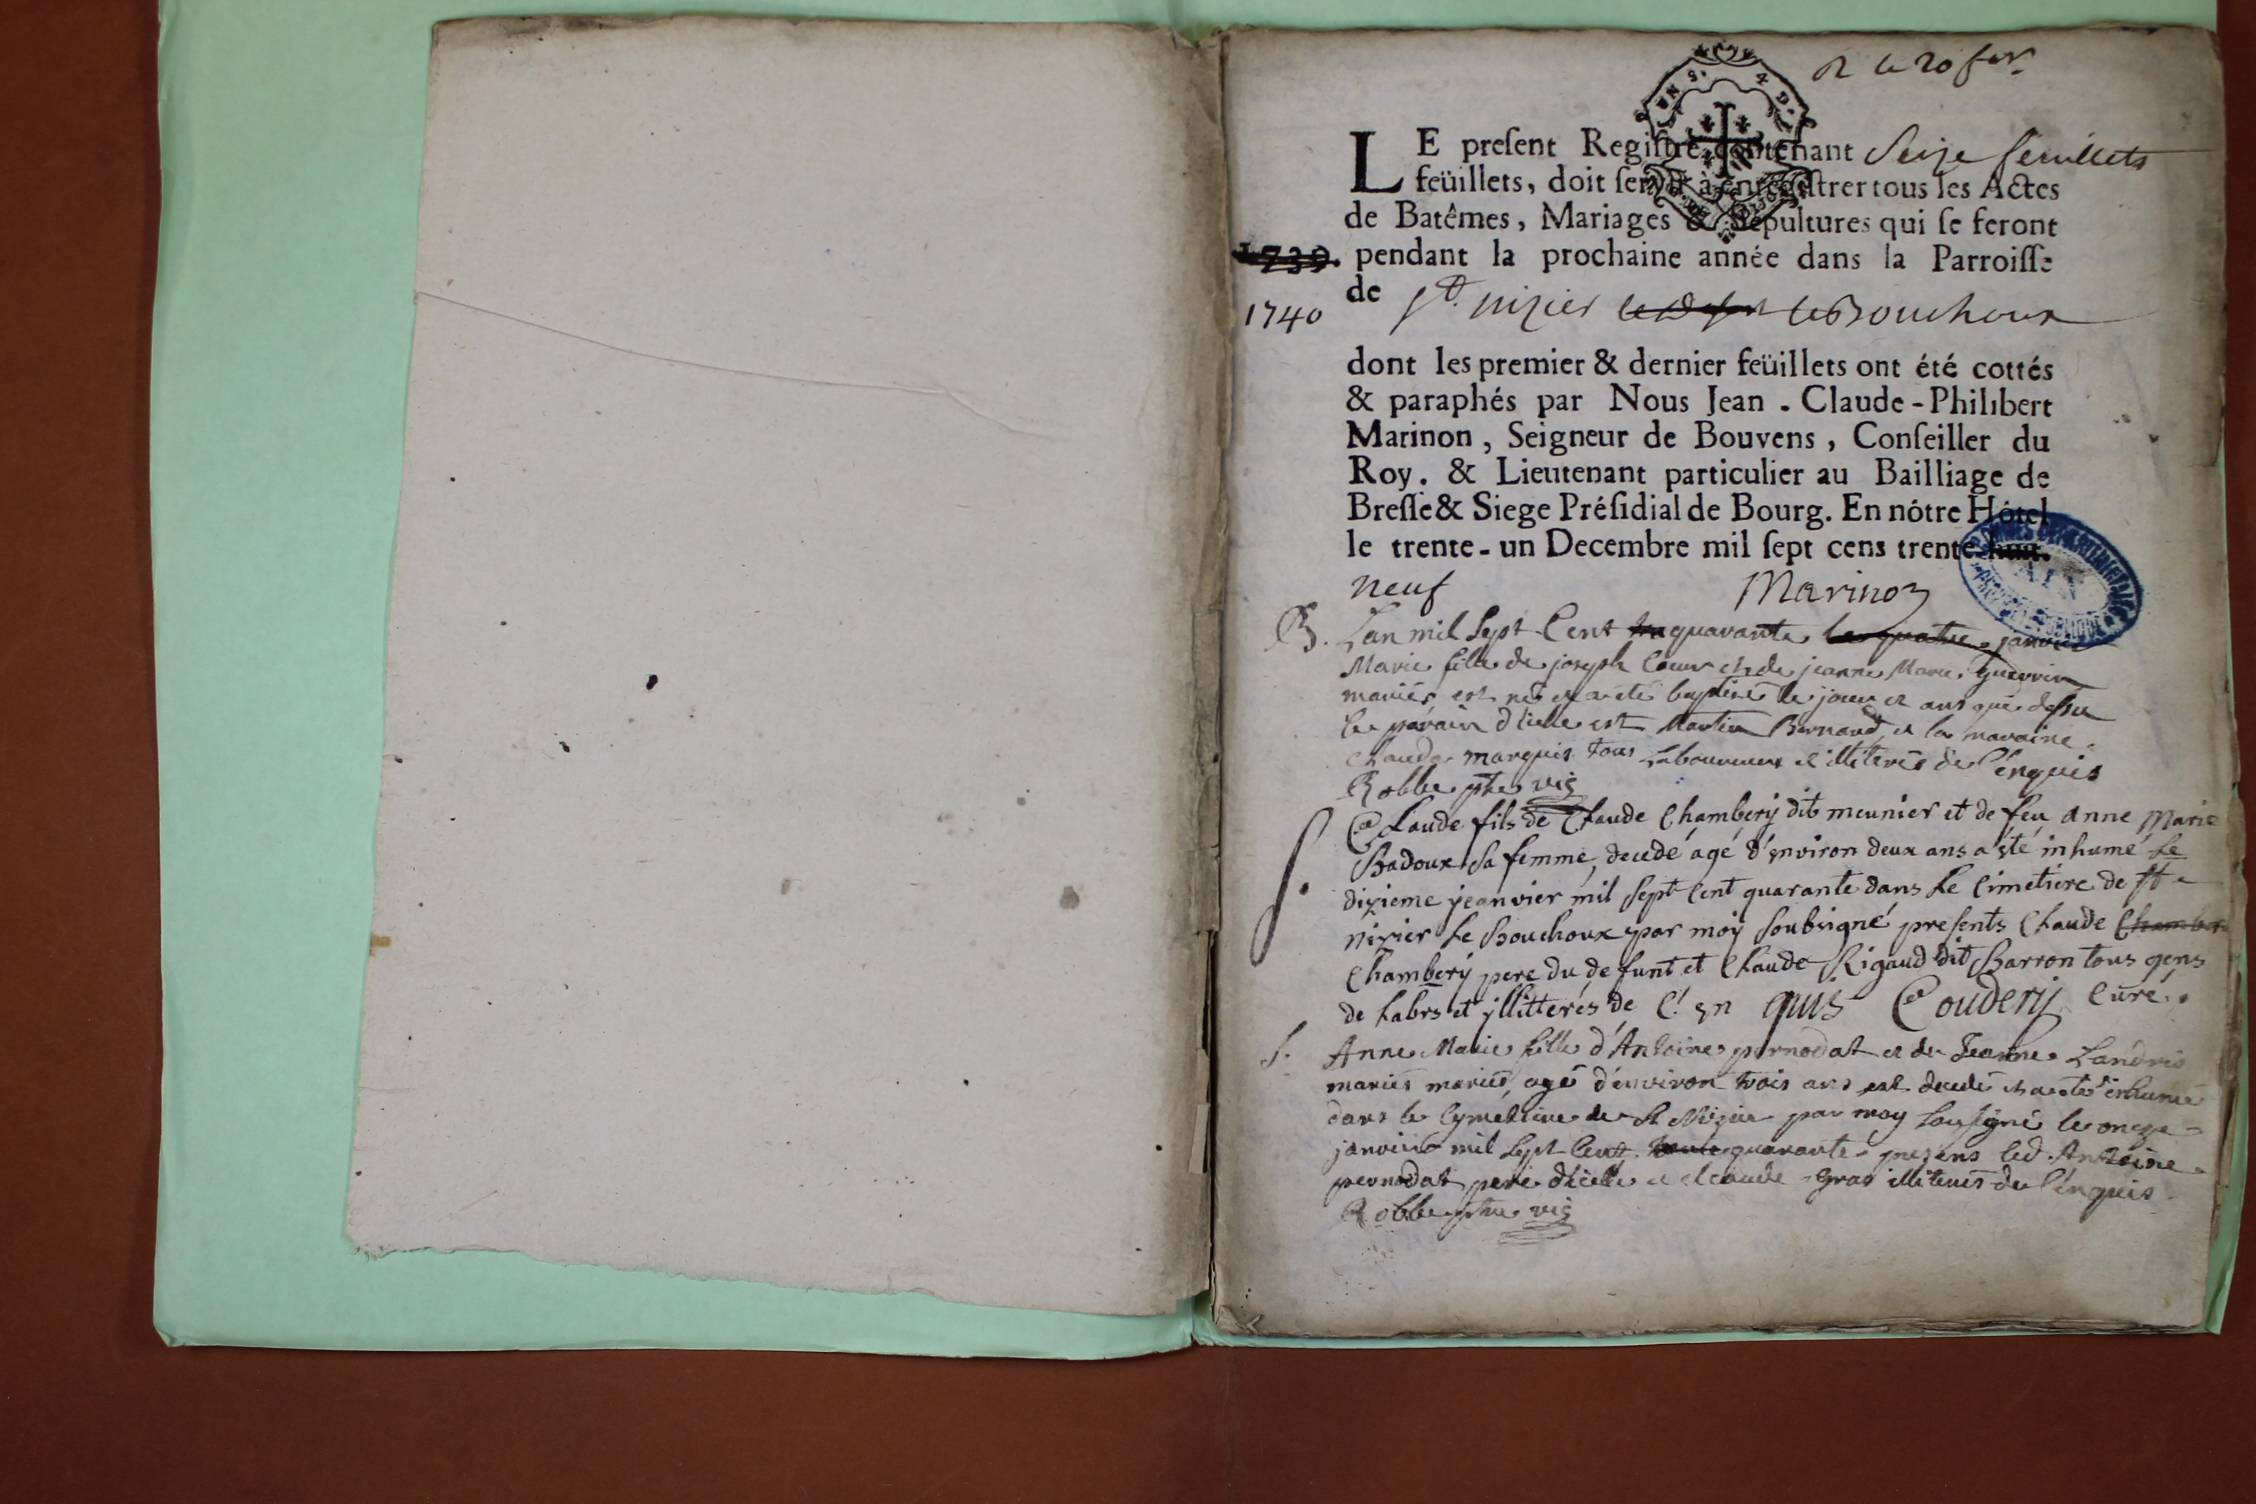 R le 20 fevr.
UN S. 4 D.
LE preſent Regiſtre contenant Seize feuillets
feüillets, doit ſervir à enregiſtrer tous les Actes
de Batêmes, Mariages & Sepultures qui ſe feront
1739. pendant la prochaine année dans la Parroiſſe
1740
de St. nizier le Bouchoux
dont les premier & dernier feüillets ont été cottés
& paraphés par Nous Jean-Claude-Philibert
Marinon, Seigneur de Bouvens, Conſeiller du
Roy, & Lieutenant particulier au Bailliage de
Breſſe & Siege Préſidial de Bourg. En nôtre Hôtel
le trente-un Decembre mil ſept cens trente-huit.
neuf Marinon
B. Lan mil Sept Cent quarante le quatre janvier
Marie fille de joseph et de jeanne Marie Guerrin
mariés est né et a eté baptisé le jour et ans que dessu
le parain d'icelle est Martin Bernard et la maraine
Clauda marquis tous Laboureurs et illiterés de l'enquis
Robbe ptre vic
S. Claude fils de Claude Chambery dit meunier et de feu anne Marie
Badoux sa femme, decedé agé d'environ deux ans a èté inhumé Le
dizieme jeanvier mil sept cent quarante dans Le Cimetiere de st
nizier Le Bouchoux par moy soubsigné presents Claude Chamber
Chambery pere du defunt et Claude Rigaud dit Barron tous gens
de Labrs et jllitterés de L'enquis Coudery Curé.
S. Anne Marie fille d'Antoine pernodat et de Jeanne Landris
mariés mariés agé d'environ trois ans est decedé et a eté inhumé
dans le Cymetiere de St Nizier par moy Soussigné le onze
janvier mil Sept Cent trente quarante presens led. Antoine
pernodat pere d'icelle et claude gras illiterés de l'enquis
Robbe ptre vic